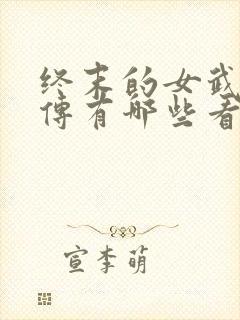 终末的女武
传有哪些看
宣李萌